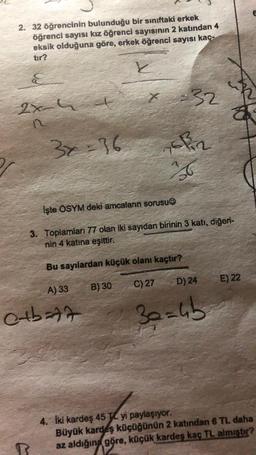 2. 32 öğrencinin bulunduğu bir sınıftaki erkek
öğrenci sayısı kız öğrenci sayısının 2 katından 4
eksik olduğuna göre, erkek öğrenci sayısı kaç-
tır?
E K
2x-4 + x =32
3x=36
İşte ÖSYM deki amcaların sorusu☺
3. Toplamları 77 olan iki sayıdan birinin 3 katı, diğeri-
nin 4 katına eşittir.
Bu sayılardan küçük olanı kaçtır?
A) 33 B) 30 C) 27 D) 24 E) 22
a+b=77 3a=4b
4. İki kardeş 45 TL yi paylaşıyor.
Büyük kardeş küçüğünün 2 katından 6 TL daha
az aldığına göre, küçük kardeş kaç TL almıştır?